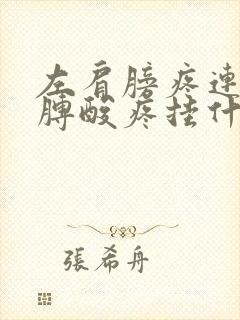 左肩膀疼連
膊酸疼挂什
張希舟